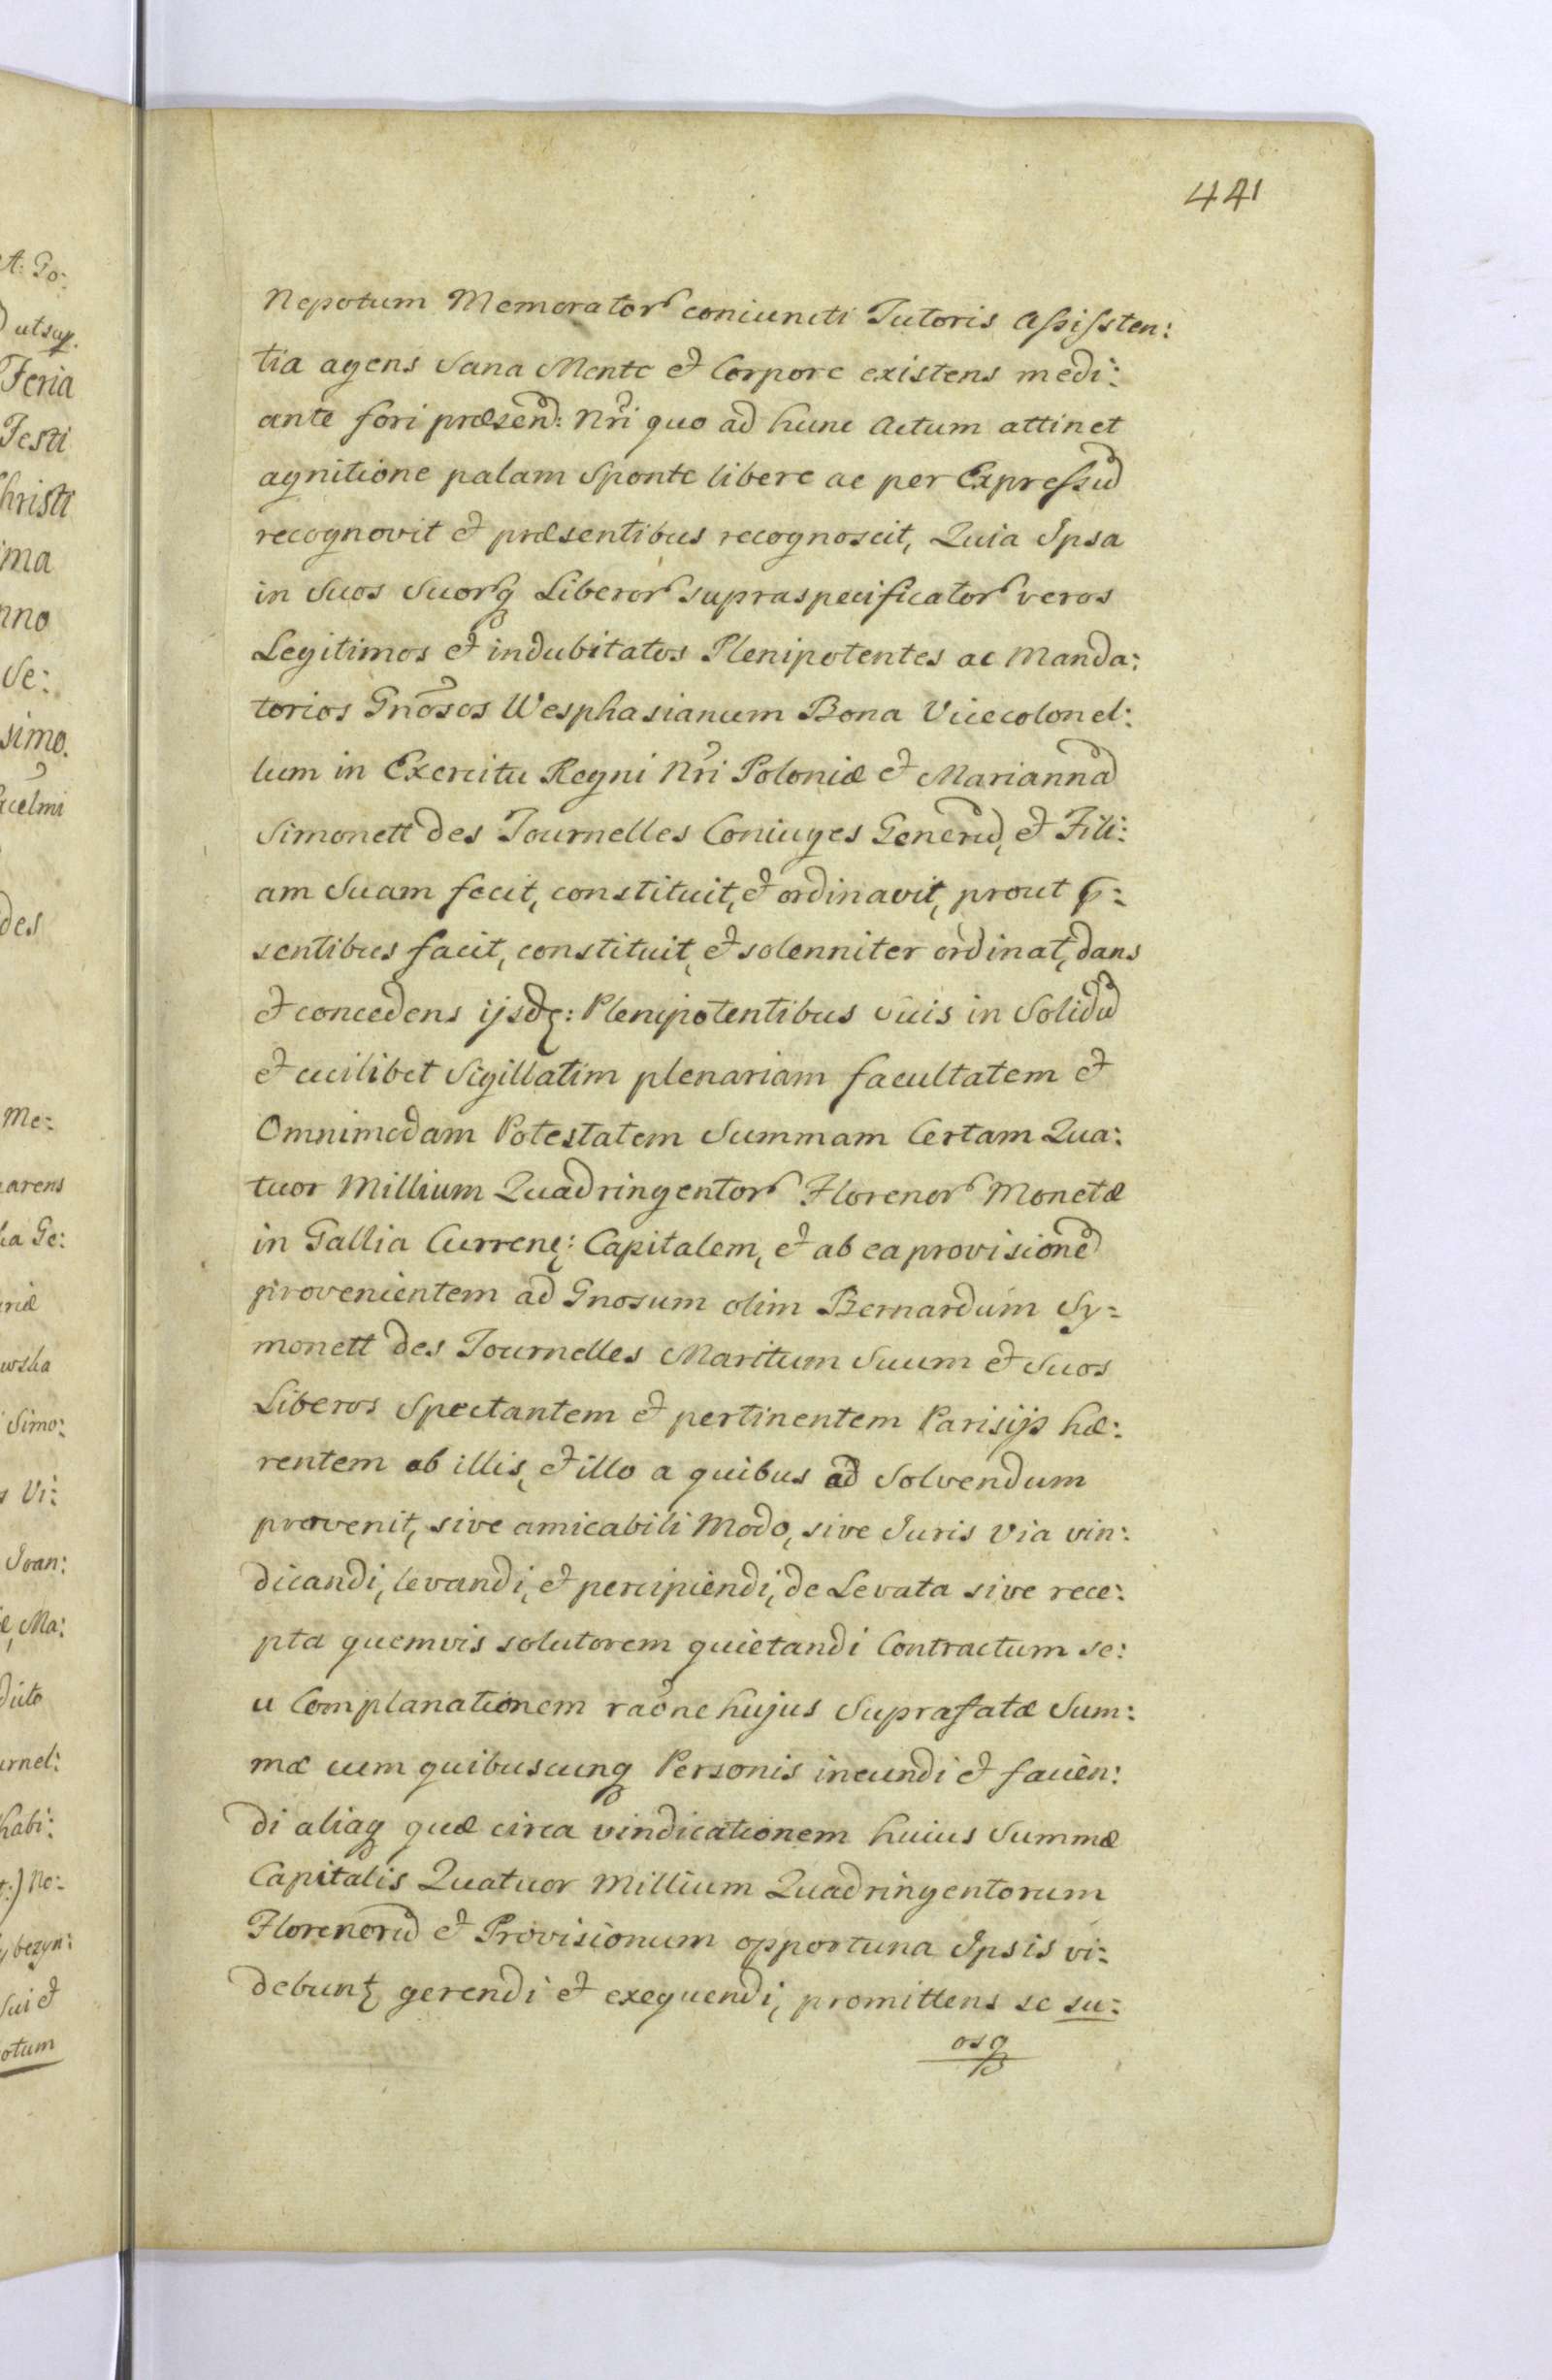 441
Nepotum Memorator coniuncti Tutoris Assisten:
tia agens Sana Mente et Corpore existens medi:
ante fori præsen: Nri quo ad hunc Actum attinet
agnitione palam Sponte libere ac per Expressu
recognovit et præsentibus recognoscit, Quia Ipsa
in Suos Suorq Liberor supraspecificator veros
Legitimos et indubitatos Plenipotentes ac Manda:
torios Gnosos Wesphasianum Bona Vicecolonel:
lum in Exercitu Regni Nri Poloniæ et Marianna
Simonett des Tournelles Coniuges Generu, et Fili:
am Suam fecit, constituit, et ordinavit, prout p:
sentibus facit, constituit, et solenniter ordinat, dans
et concedens ijsdę: Plenipotentibus Suis in Solidu
et cuilibet Sigillatim plenariam facultatem et
Omnimodam Potestatem Summam Certam Qua:
tuor Millium Quadringentor Florenor Monetæ
in Gallia Currenę: Capitalem, et ab ea provisione
provenientem ad Gnosum olim Bernardum Sy=
monett des Tournelles Maritum Suum et Suos
Liberos Spectantem et pertinentem Parisijs hæ:
rentem ab illis, et illo a quibus ad Solvendum
provenit, sive amicabili Modo, sive Juris Via vin:
dicandi, levandi, et percipiendi, de Levata sive rece:
pta quemvis solutorem quietandi Contractum se:
u Complanationem raone hujus Suprafatæ Sum:
mæ cum quibuscunq Personis ineundi et facien:
di aliaq quæ circa vindicationem huius Summæ
Capitalis Quatuor Millium Quadringentorum
Florenoru et Provisionum opportuna Ipsis vi:
debunt gerendi et exequendi, promittens se su:
osq